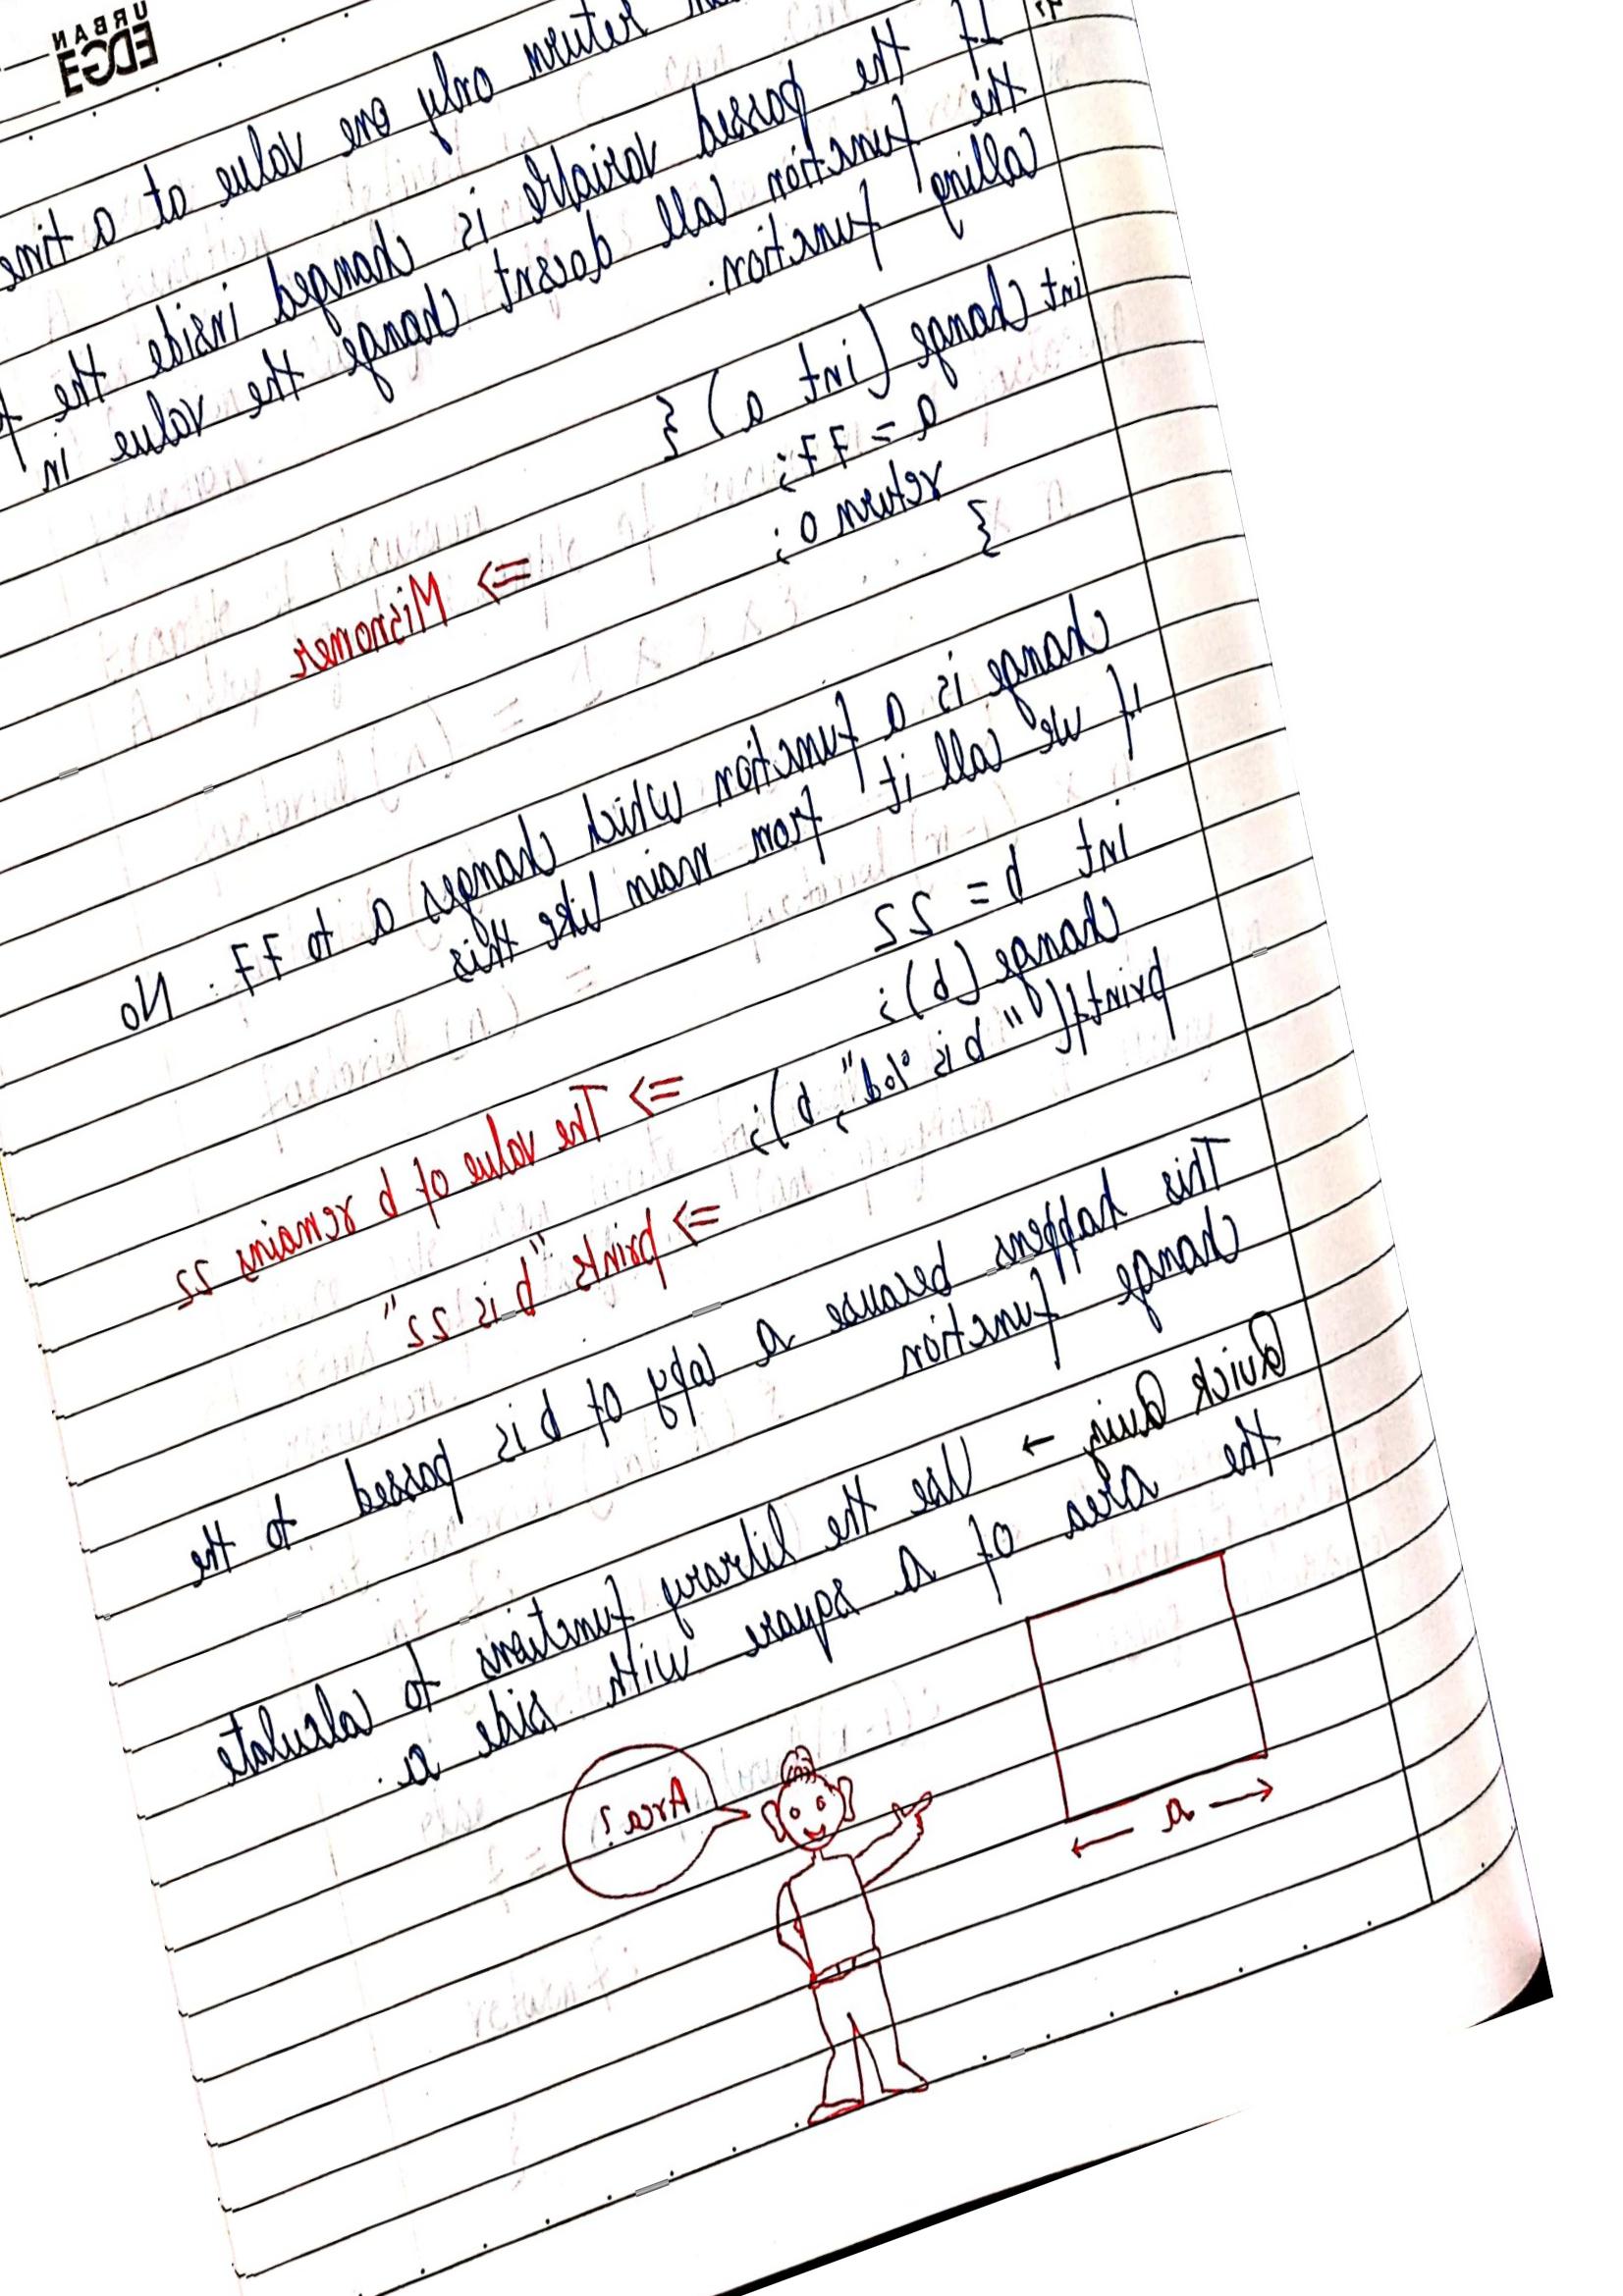 URBAN
EDGE
return only one value at a time
If the passed variable is changed inside the
the function call doesnt change the value in
calling function.
int change (int a) {
a = 77;
return 0;
}
=> Misnomer
change is a function which changes a to 77. No
if we call it from main like this
int b = 22
change (b);
printf(" b is %d", b);
=> The value of b remains 22
=> prints "b is 22"
This happens because a copy of b is passed to the
change function
Quick Quiz → Use the library functions to calculate
the area of a square with side a.
Area?
← a →